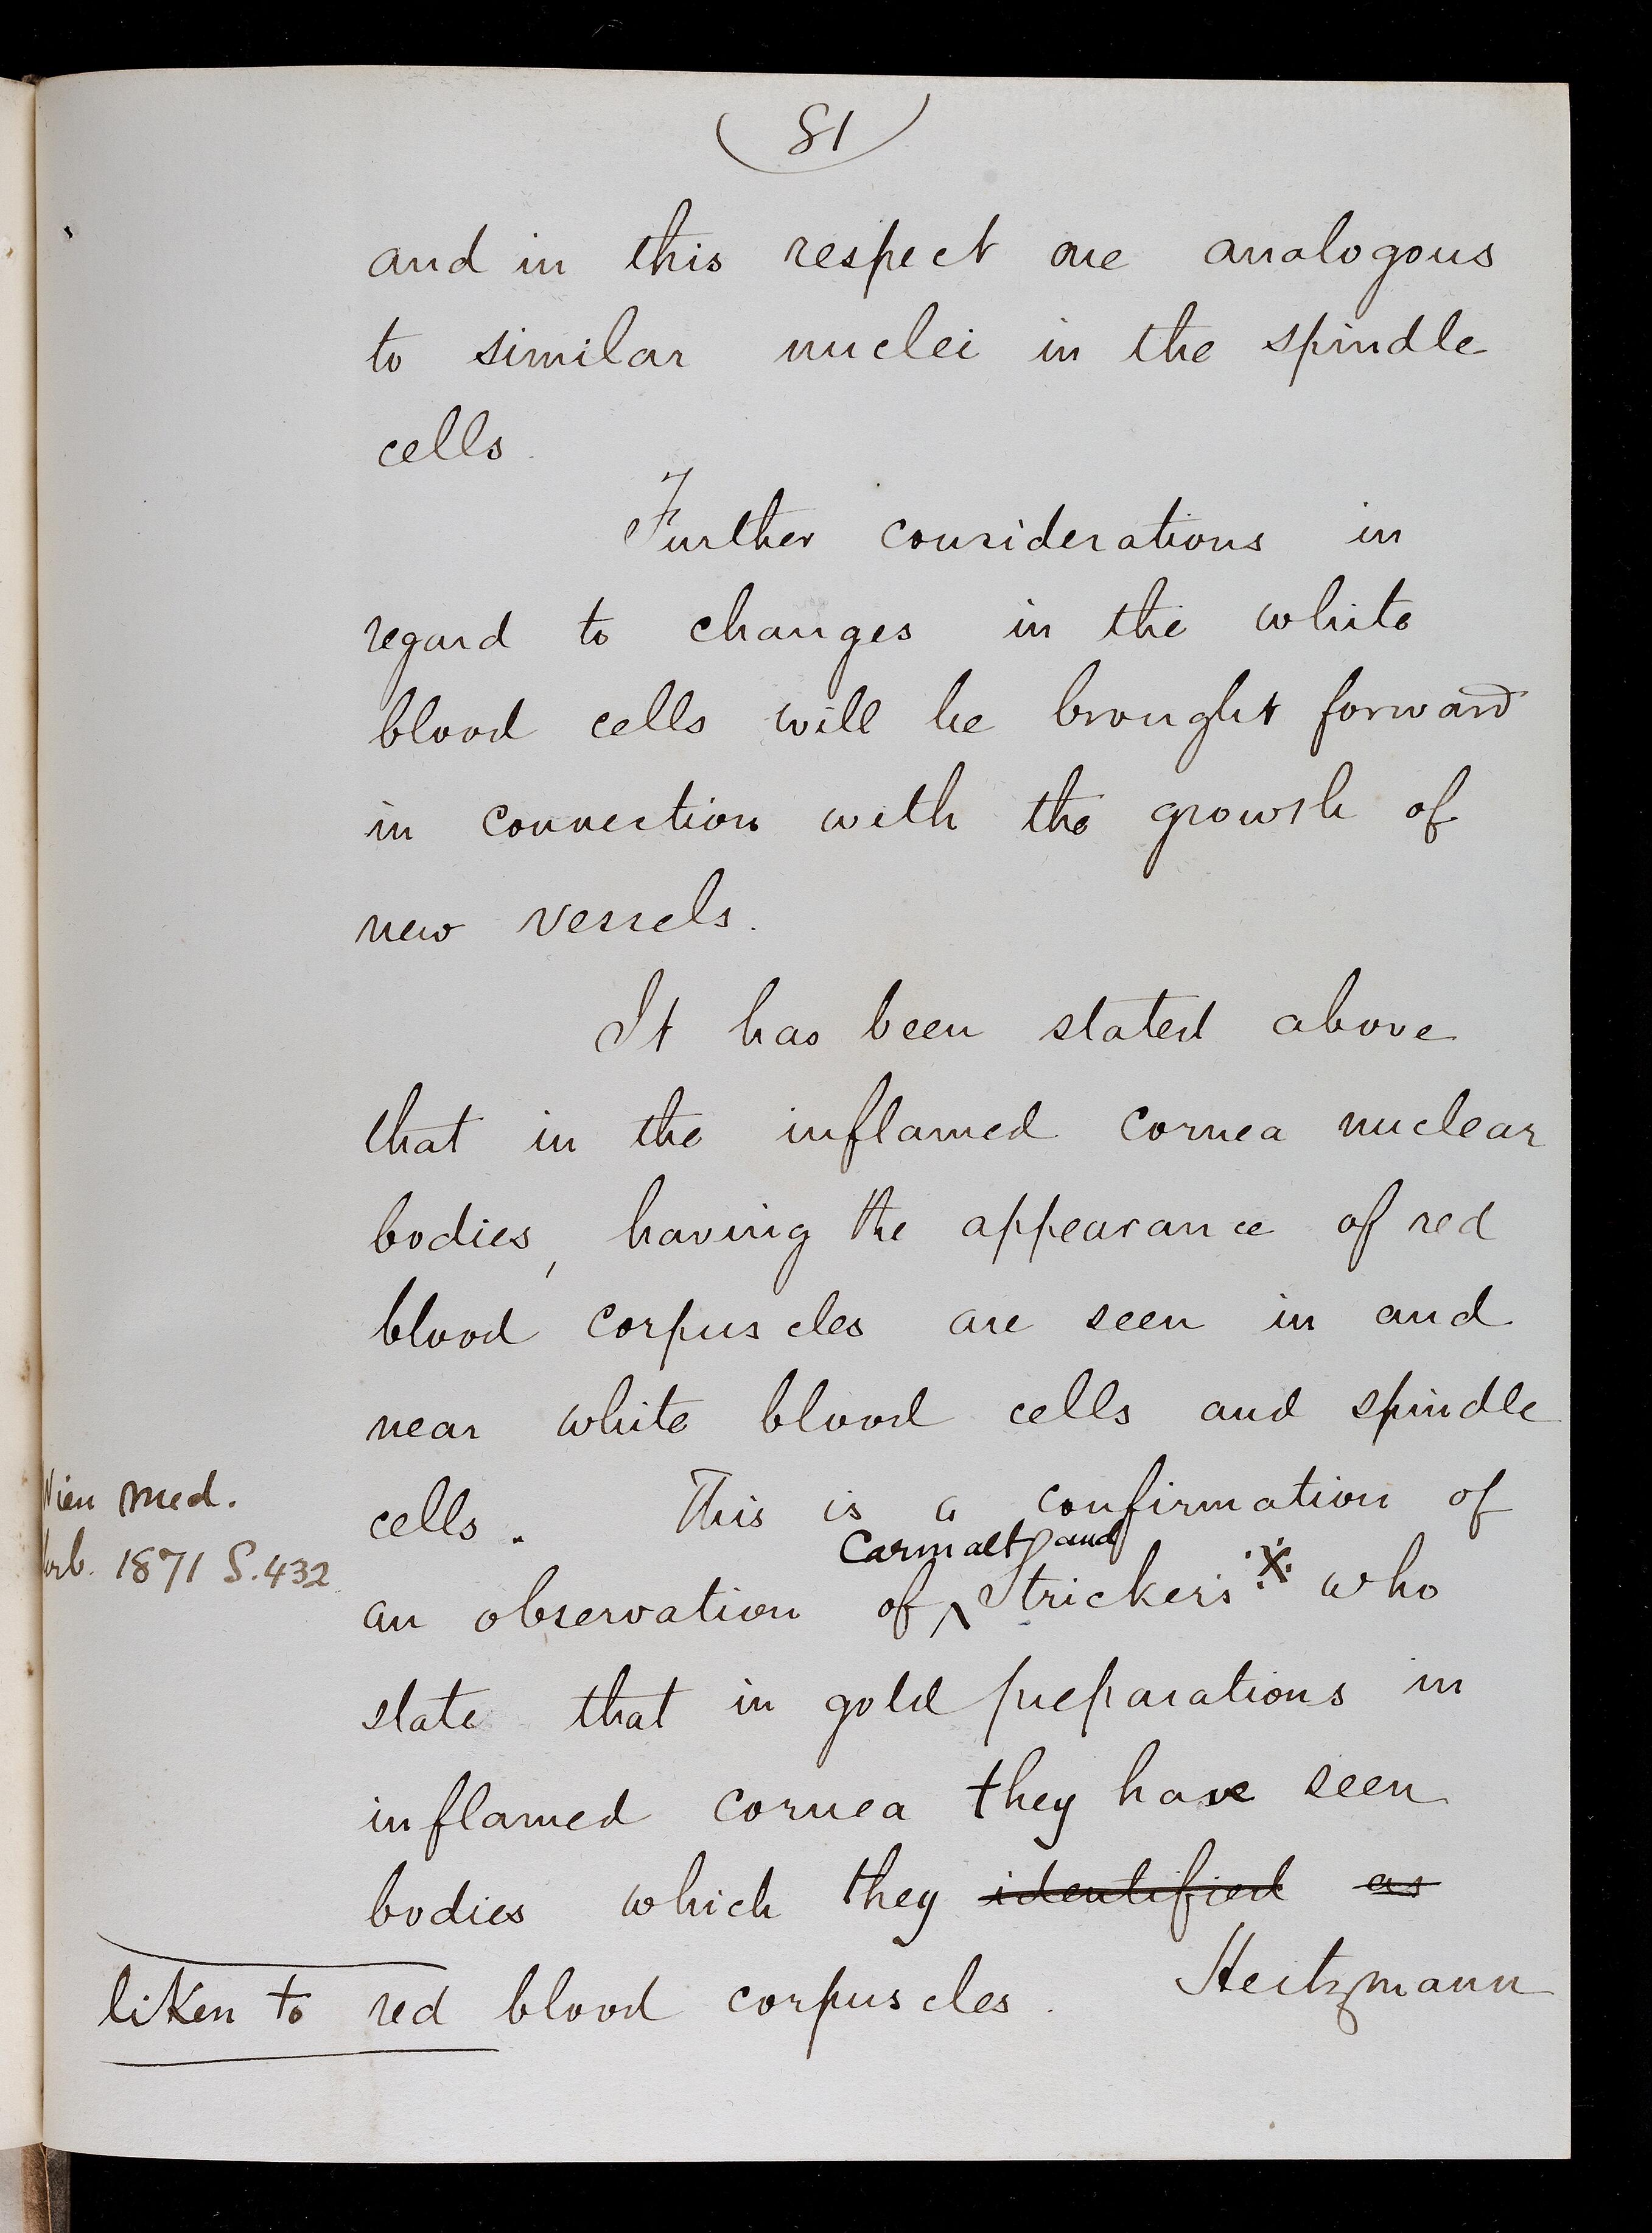 81
and in this respect are analogous
to similar nuclei in the spindle
cells.
Further considerations in
regard to changes in the white
blood cells will be brought forward
in connection with the growth of
new vessels.
It has been stated above
that in the inflamed cornea nuclear
bodies, having the appearance of red
blood corpuscles are seen in and
near white blood cells and spindle
Wien med.
cells. This is a confirmation of
Carmalt and
1871 S.432
an observation of ^ Strickers x who
state that in gold preparations in
inflamed cornea they have seen
bodies which they identified as
liken to red blood corpuscles. Heitzmann